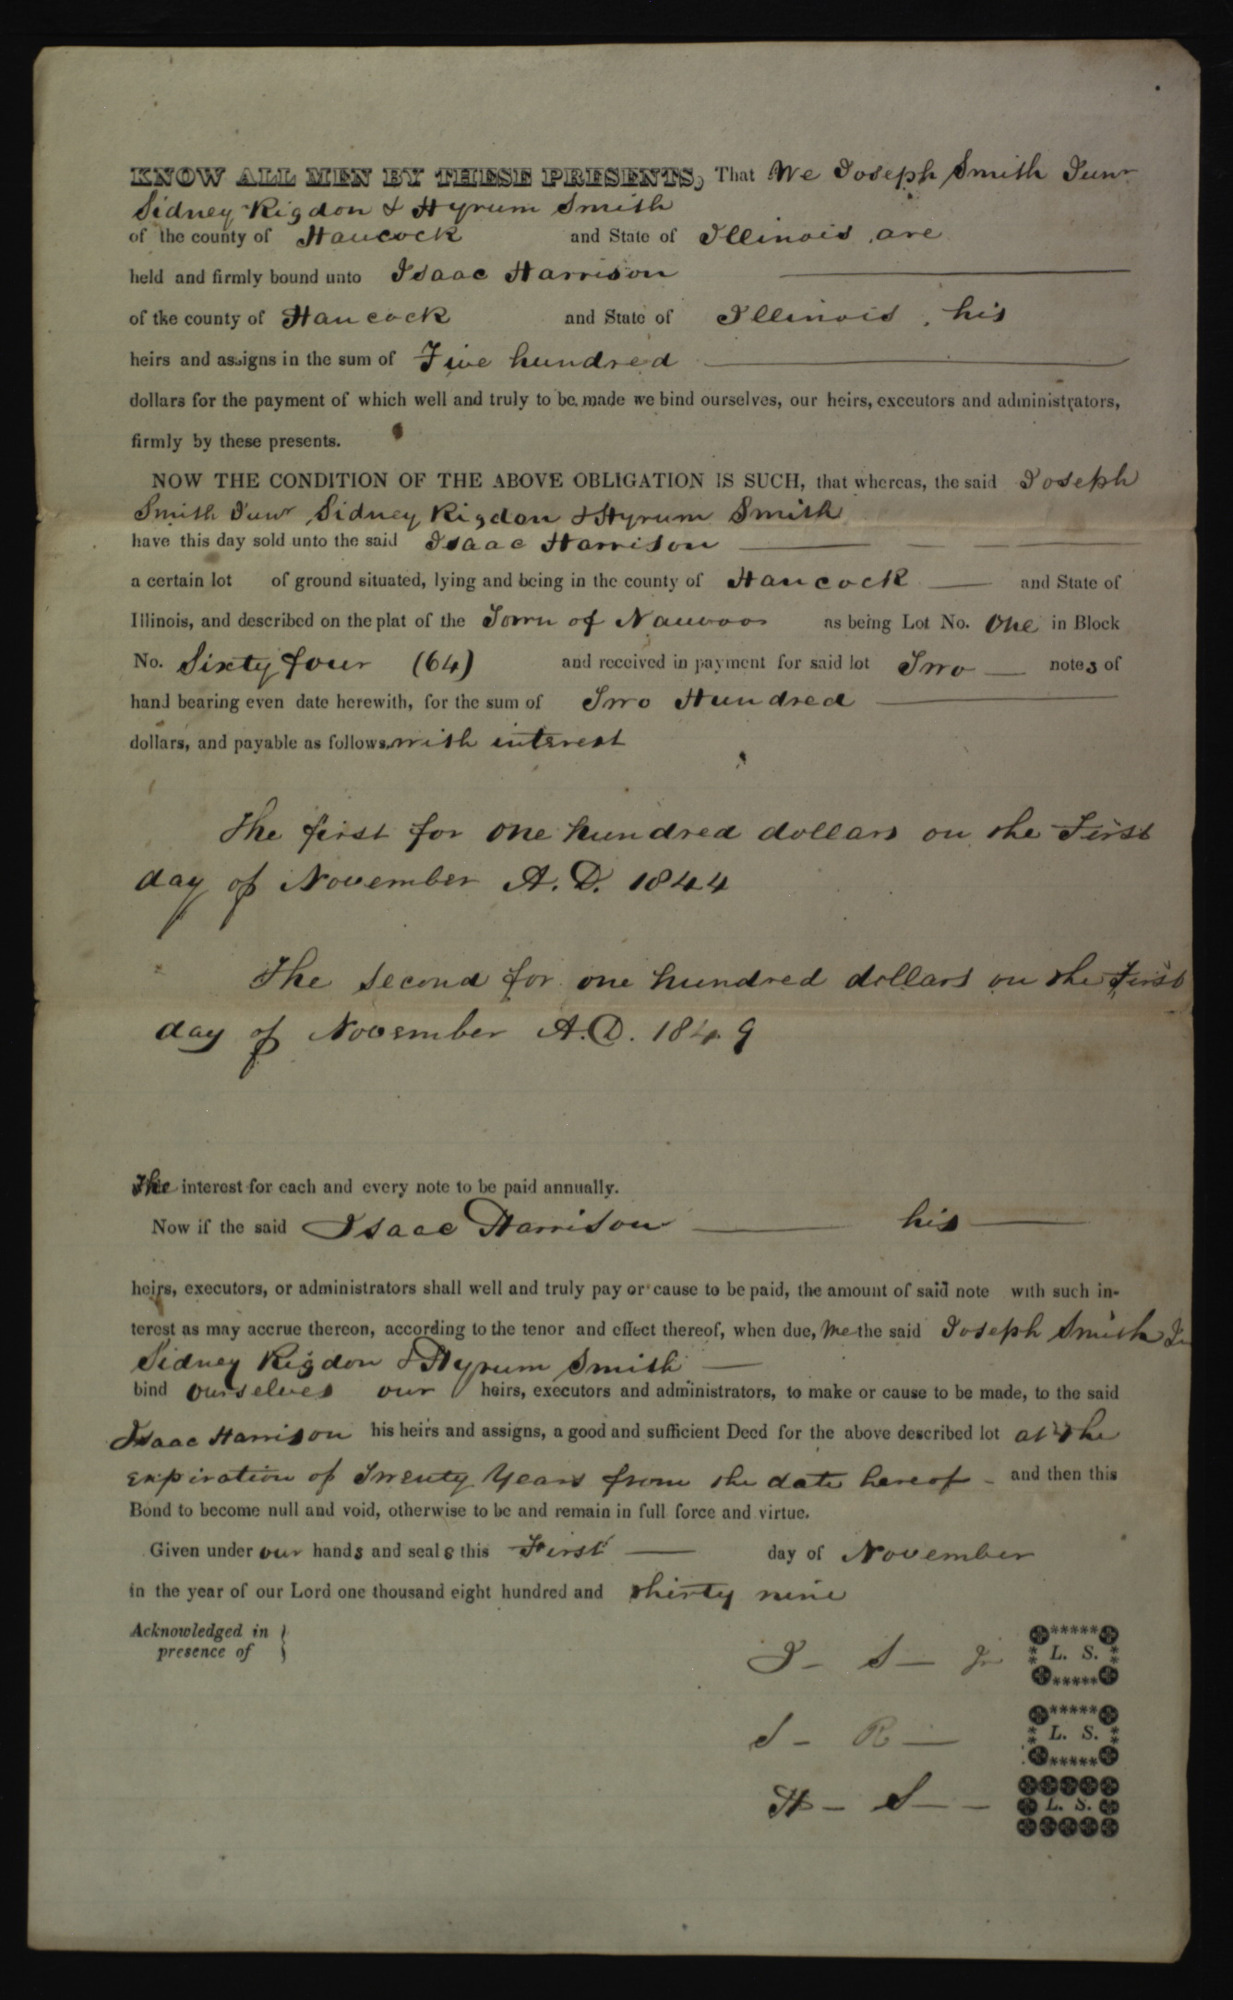 KNOW ALL MEN BY THESE PRESENTS, That We Joseph Smith Junr
Sidney Rigdon & Hyrum Smith
of the county of Hancock and State of Illinois, are
held and firmly bound unto Isaac Harrison
of tke county of Hancock and State of Illinois, his
heirs and assigns in the sum of Five hundred
dollars for the payment of which well and truly to be made we bind ourselves, our heirs, executors and administrators,
firmly by these presents.
NOW THE CONDITION OF THE ABOVE OBLIGATION IS SUCH, that whereas, the said Joseph
Smith Junr Sidney Rigdon & Hyrum Smith
have this day sold unto the said Isaac Harrison
a certain lot of ground situated, lying and being in the county of Hancock and State of
Illinois, and described on the plat of the Town of Nauvoo as being Lot No. One in Block
No. Sixty four (64) and received in payment for said lot Two notes of
hand bearing even date herewith, for the sum of Two Hundred
dollars, and payable as follows, with interest
The first for one hundred dollars on the First
day of November A.D. 1844
The second for one hundred dollars on the First
day of November A.D. 1849
The interest for each and every note to be paid annually.
Now if the said Isaac Harrison his
heirs, executors, or administrators shall well and truly pay or cause to be paid, the amount of said note with such in-
terest as may accrue thereon, according to the tenor and effect thereof, when due, We the said Joseph Smith Ju
Sidney Rigdon & Hyrum Smith
bind ourselves our heirs, executors and administrators, to make or cause to be made, to the said
Isaac Harrison his heirs and assigns, a good and sufficient Deed for the above described lot at the
expiration of Twenty Years from the date hereof - and then this
Bond to become null and void, otherwise to be and remain in full force and virtue.
Given under our hands and seals this First day of November
in the year of our Lord one thousand eight hundred and thirty nine
Acknowledged in
presence of }
J- S- Jr L. S.
S- R- L. S.
H- S- - L. S.